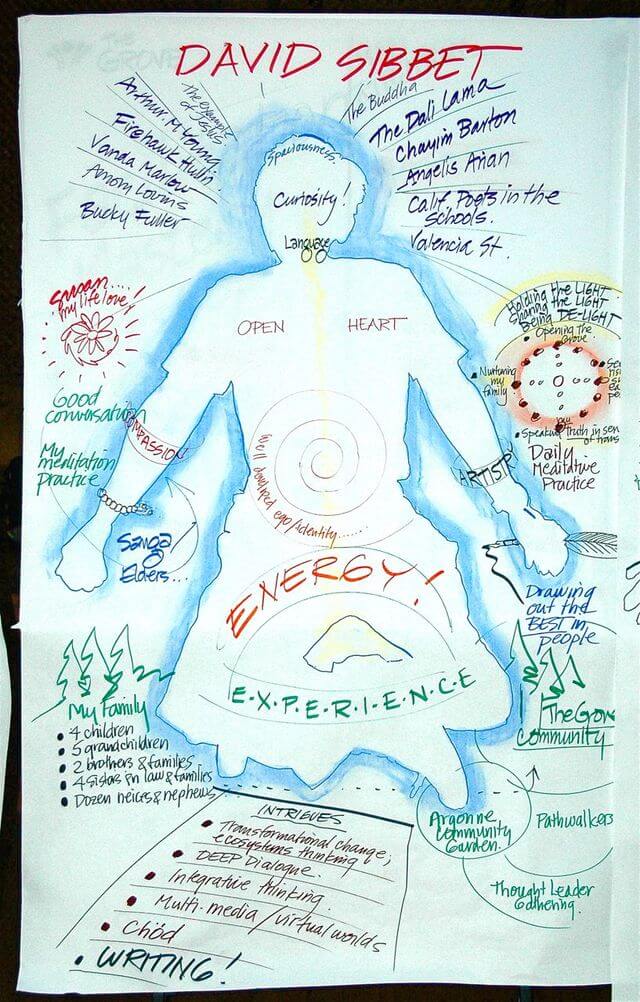 DAVID SIBBET
The example
of Jesus
Arthur M Young
Firehawk Hulin.
Vanda Marlow
Amory Lovins
Bucky Fuller
The Buddha
The Dali Lama
Chayim Barton
Angelis Arian
Calif. Poets in the
Schools.
Valencia St.
Spaciousness
Curiosity!
Language
OPEN HEART
Susan....
my life love!
Good
conversation
My meditation
Practice
COMPASSION
Sanga
Elders...
Holding the LIGHT
Sharing the LIGHT
Being DE-LIGHT
• Opening the
Grove
• Nurturing
my
family
• Speaking Truth in sen
of trans
Daily
Meditative
Practice
ARTISTRY
Well developed ego/identity......
ENERGY!
E·X·P·E·R·I·E·N·C·E
Drawing
out the
BEST in
people
My Family
• 4 children
• 5 grandchildren
• 2 brothers & families
• 4 sisters in law & families
• Dozen neices & nephews
The Grov
Community
Argonne
Community
Garden.
Pathwalkers
Thought Leader
Gathering.
INTRIGUES
• Transformational change,
ecosystems thinking
• DEEP Dialogue.
• Integrative thinking.
• Multi-media/virtual worlds
• Chöd
• WRITING!